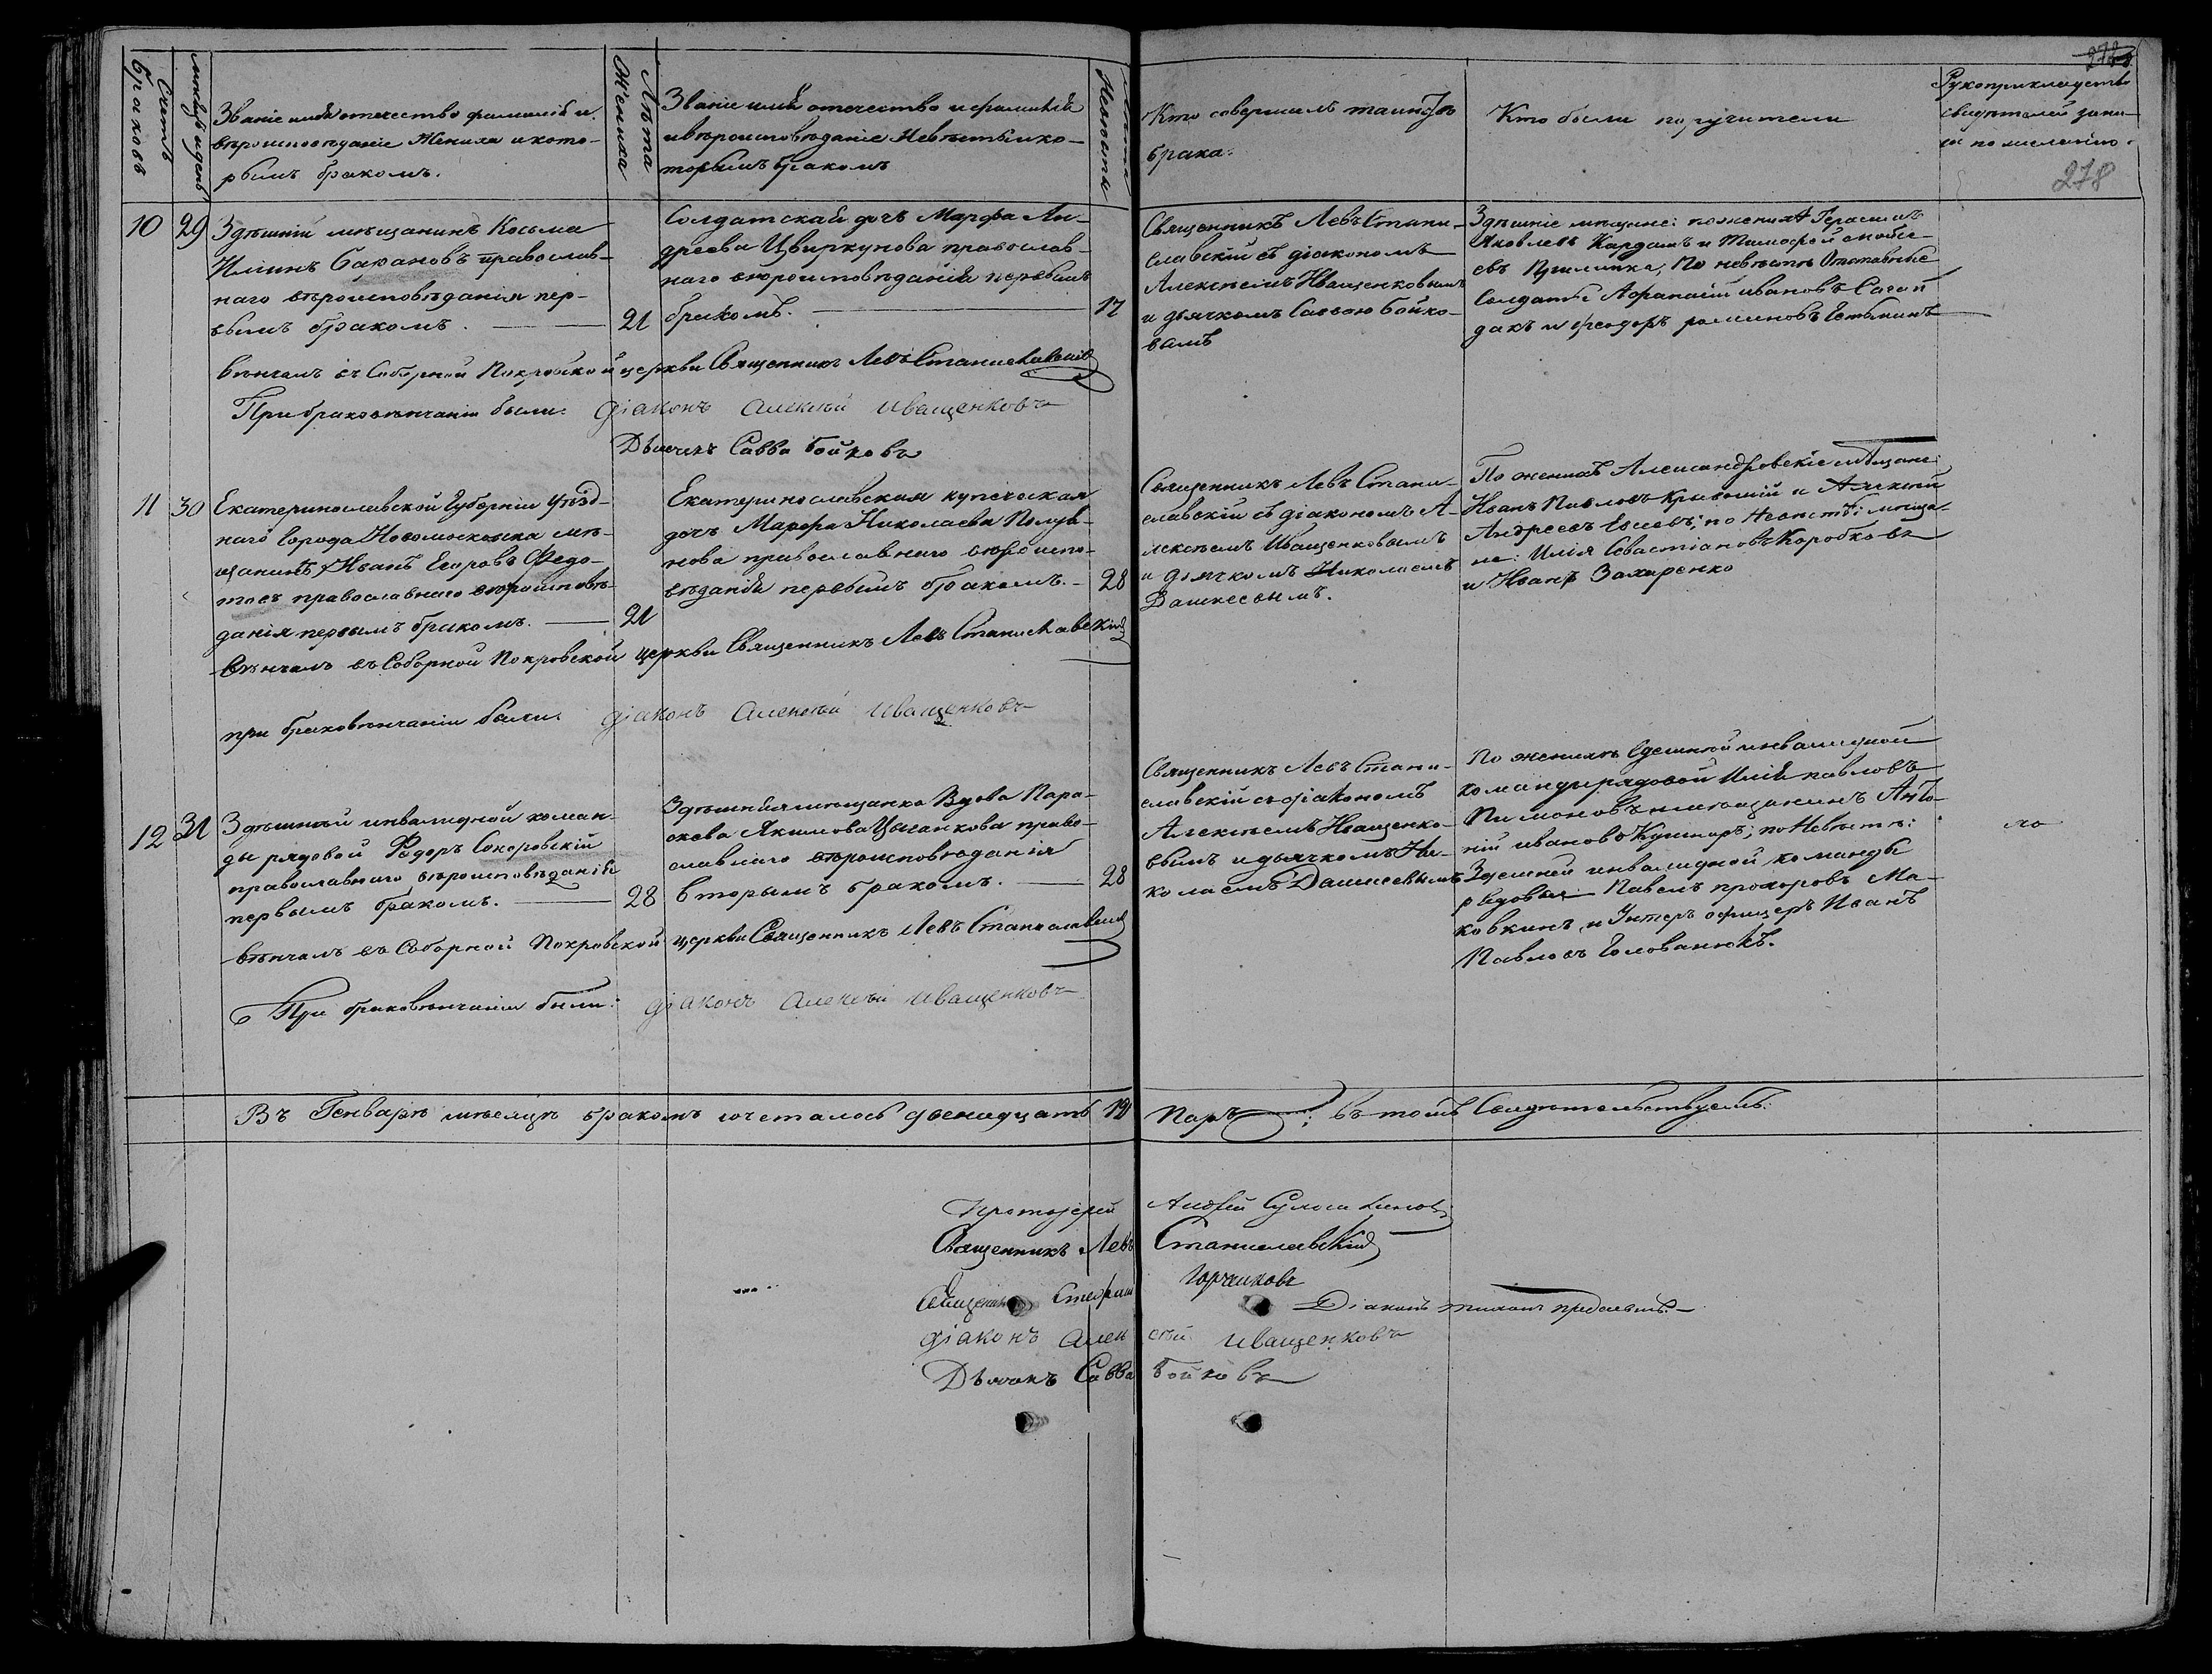 278
Счетъ браковъ
мѣсяцъ и день
Званіе имя отечество фамилія и
вѣроисповѣданіе Жениха и кото-
рымъ бракомъ.
Лѣта Жениха
Званіе имя отечество и фамилія
и вѣроисповѣданіе Невѣсты и ко-
торымъ бракомъ
Лѣта Невѣсты
Кто совершалъ таинство
брака.
Кто были поручители
Рукоприкладство
свидѣтелей запи-
си по желанію.
278
10
29
Здѣшній мѣщанинъ Косьма
Илiинъ Бакановъ православ-
наго вѣроисповѣданія пер-
вымъ бракомъ.
21
Солдатская дочь Марфа Ан-
дреева Цвиркунова православ-
наго вѣроисповѣданія первымъ
бракомъ.
17
Священникъ Левъ Стани-
славскій съ діакономъ
Алексѣемъ Иващенковымъ
и дьячкомъ Саввою Бойко-
вымъ
Здѣшніе мѣщане: по женихѣ Герасимъ
Яковлевъ Кардашъ и Тимофей Мойсе-
евъ Прилипка, По невѣстѣ Отставные
Солдаты Афанасій Ивановъ Сагай
дакъ и Феодоръ
Вѣнчалъ въ Соборной Покровской церкви Священникъ Левъ Станиславскій
При браковѣнчаніи были: діаконъ Алексѣй Иващенковъ
Дьячокъ Савва Бойковъ
11
30
Екатеринославской Губерніи Уѣзд-
наго Города Новомосковска мѣ-
щанинъ Иванъ Егоровъ Федо-
товъ православнаго вѣроисповѣ-
данія первымъ бракомъ.
21
Екатеринославская купеческая
дочь Марфа Николаева Полуя-
нова православнаго вѣроиспо-
вѣданія первымъ бракомъ.
28
Священникъ Левъ Стани-
славскій съ діакономъ А-
лексѣемъ Иващенковымъ
и дьячкомъ Николаемъ
Дашкеевымъ.
По женихѣ Александровскіе мѣщане:
Иванъ Павловъ и Алексѣй
Андреевъ Евсеевъ; по Невѣстѣ: мѣща-
не: Илія Севастіановъ Коробковъ
и Иванъ Захаренко
Вѣнчалъ въ Соборной Покровской церкви Священникъ Левъ Станиславскій
при браковѣнчаніи были: діаконъ Алексѣй Иващенковъ
12
31
Здѣшней инвалидной коман-
ды рядовой Федоръ Сокоровскій
православнаго вѣроисповѣданія
первымъ бракомъ.
28
Здѣшняя мѣщанка Вдова Пара-
скева Якимова Цыганкова право-
славнаго вѣроисповѣданія
вторымъ бракомъ.
28
Священникъ Левъ Стани-
славскій съ діакономъ
Алексѣемъ Иващенко-
вымъ и дьячкомъ Ни-
колаемъ Дашкеевымъ
По женихѣ Здешней инвалидной
команды рядовой Илія Павловъ
Пимоновъ и мѣщанинъ Анто-
ній Ивановъ Кушнаръ; по Невѣстѣ:
Здешней инвалидной команды
рядовый Павелъ Прохоровъ Ма-
ковкинъ, и Унтеръ офицеръ Иванъ
Павловъ Голованюкъ.
Вѣнчалъ въ Соборной Покровской церкви Священникъ Левъ Станиславскій
При браковѣнчаніи были: діаконъ Алексѣй Иващенковъ
Въ Генварѣ мѣсяцѣ бракомъ сочеталось двенадцать 12 Паръ; въ томъ Свидѣтельствуемъ:
Протоіерей Андрей
Священникъ Левъ Станиславскій
Священникъ Стефанъ Горчаковъ
Діаконъ
діаконъ Алексѣй Иващенковъ
Дьячокъ Савва Бойковъ